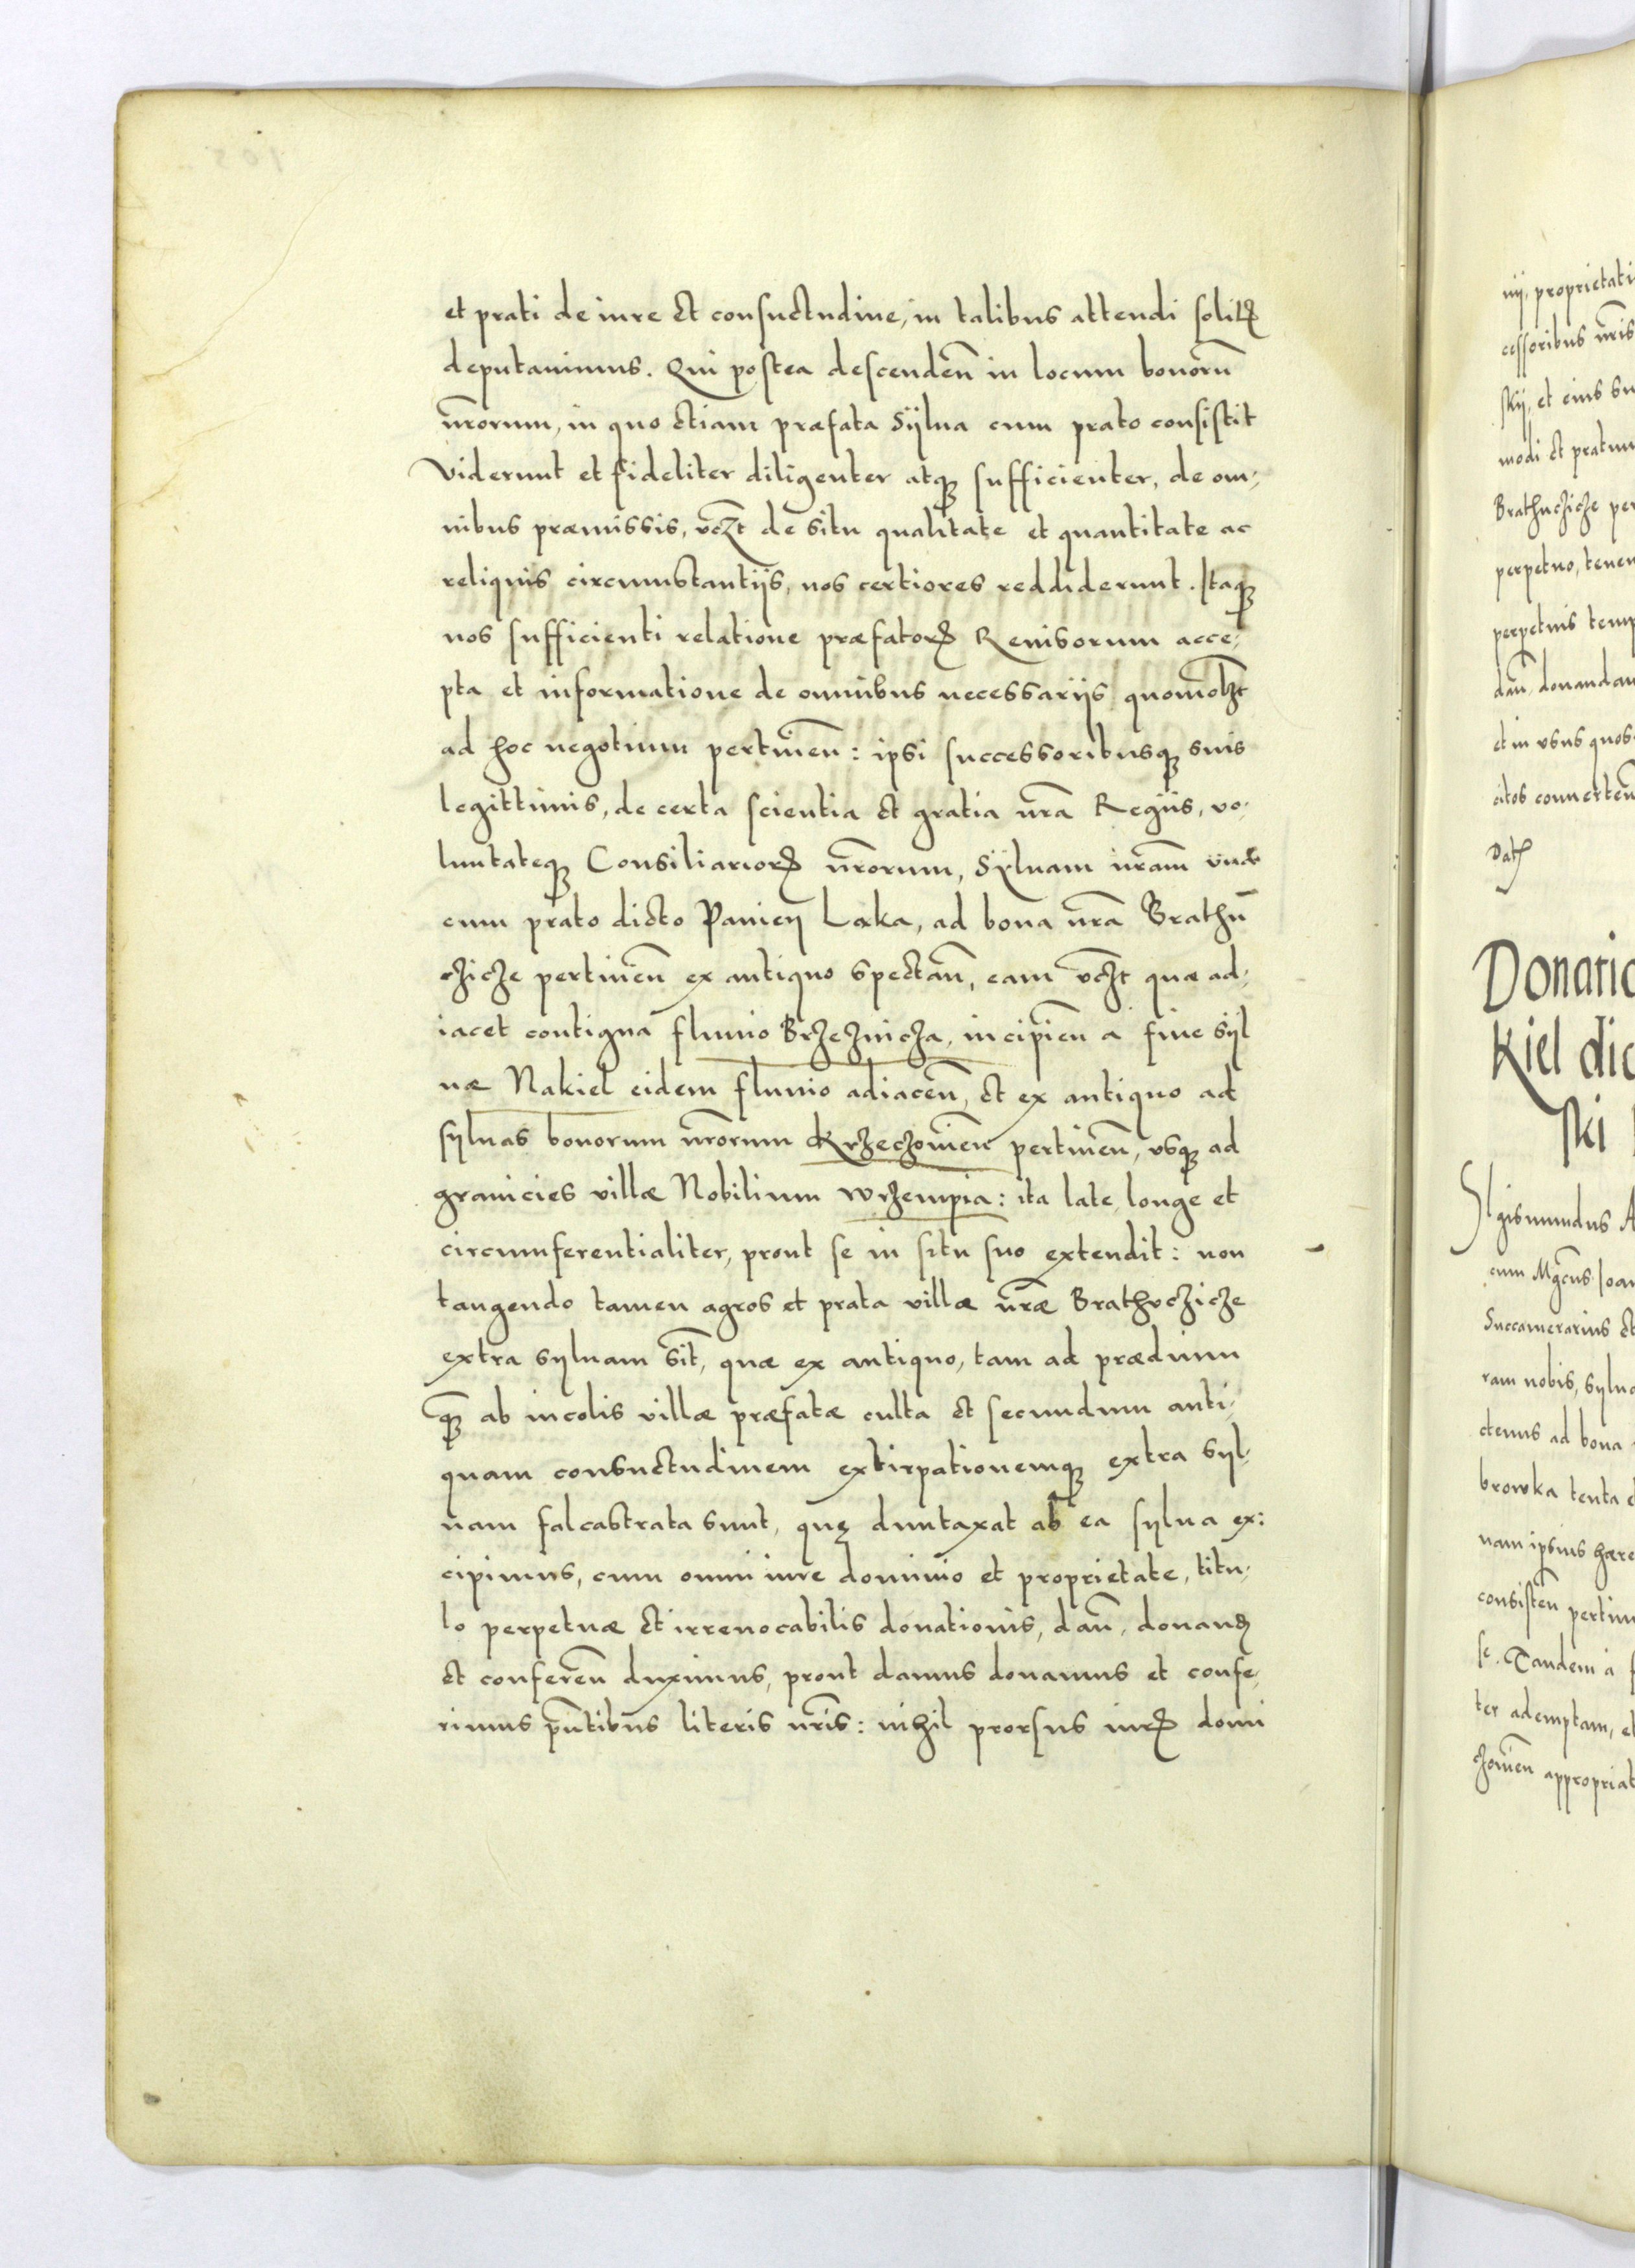 et prati de iure et consuetudine, in talibus attendi solitꝭ
deputauimus. Qui postea descendeñ in locum bonorũ
nr̃orum, in quo etiam præfata Sÿlua cum prato consistit
Viderunt et fideliter diligenter atqꝫ sufficienter, de om-
nibus præmissis, vcꝫt de situ qualitate et quantitate ac
reliquis circumstantijs, nos certiores reddiderunt. Itaqꝫ
nos sufficienti relatione præfatorꝝ Reuisorum acce-
pta et informatione de omnibus necessarijs quomolꝫt
ad hoc negotium pertineñ: ipsi successoribusqꝫ suis
legittimis, de certa scientia et gratia nr̃a Regijs, vo-
luntateqꝫ Consiliariorꝝ nr̃orum, Sÿluam nr̃am vna
cum prato dicto Panieÿ Laka, ad bona nr̃a Brathũ
cziche pertineñ ex antiquo spectañ, eam vcꝫt quæ ad-
iacet contigua fluuio Brzeznicza, incipieñ a fine Sÿl
uæ Nakiel eidem fluuio adiaceñ, et ex antiquo ad
sÿluas bonorum nr̃orum Krzeczowieñ pertineñ, vsqꝫ ad
granicies villæ Nobilium Wrzempia: ita late longe et
circumferentialiter, prout se in situ suo extendit: non
tangendo tamen agros et prata villæ nr̃æ Brathvcziche
extra sÿluam sit̃, quæ ex antiquo, tam ad prædium
qꝫ̃ ab incolis villæ præfatæ culta et secundum anti-
quam consuetudinem extirpationemqꝫ extra sÿl-
uam falcastrata sunt, quę duntaxat ab ea sÿlua ex:
cipimus, cum omni iure dominio et proprietate, titu-
lo perpetuæ et irreuocabilis donationis, dañ, donanꝭ
et confereñ duximus, prout damus donamus et confe-
rimus pñtibus literis nr̃is: nihil prorsus iurꝭ domi
nij, proprietati
cessoribus nr̃is
skÿ, et eius su
modi et pratum
Brathucziche per
perpetuo, tenen
perpetuis temp
dañ, donandam
et in vsus quos
citos conuerteñ
Datꝭ
Donatio
kiel dic
ski
SIgismundus A
cum Mgc̃us Ioan
Succamerarius et
ram nobis, sÿlua
ctenus ad bona
browka tenta e
uam ipsius hære
consisteñ pertin
se. Tandem a
ter ademptam, et
czowieñ appropriat